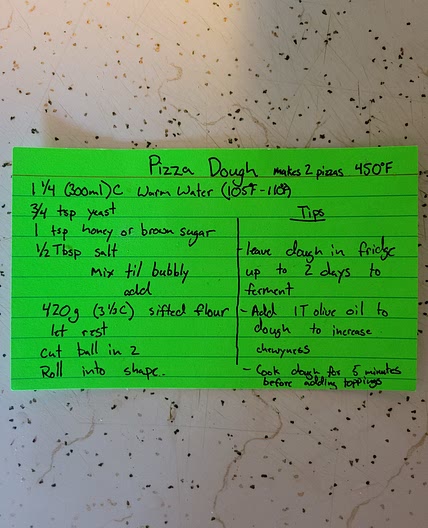 Pizza Dough makes 2 pizzas 450°F
1 1/4 (300ml) C Warm Water (105°F-110°)
3/4 tsp yeast
1 tsp honey or brown sugar
1/2 Tbsp salt
Mix til bubbly
add
420g (3 1/2 C) sifted flour
let rest
cut ball in 2
Roll into shape.
Tips
- leave dough in fridge
up to 2 days to
ferment
- Add 1T olive oil to
dough to increase
chewyness
- Cook dough for 5 minutes
before adding toppings